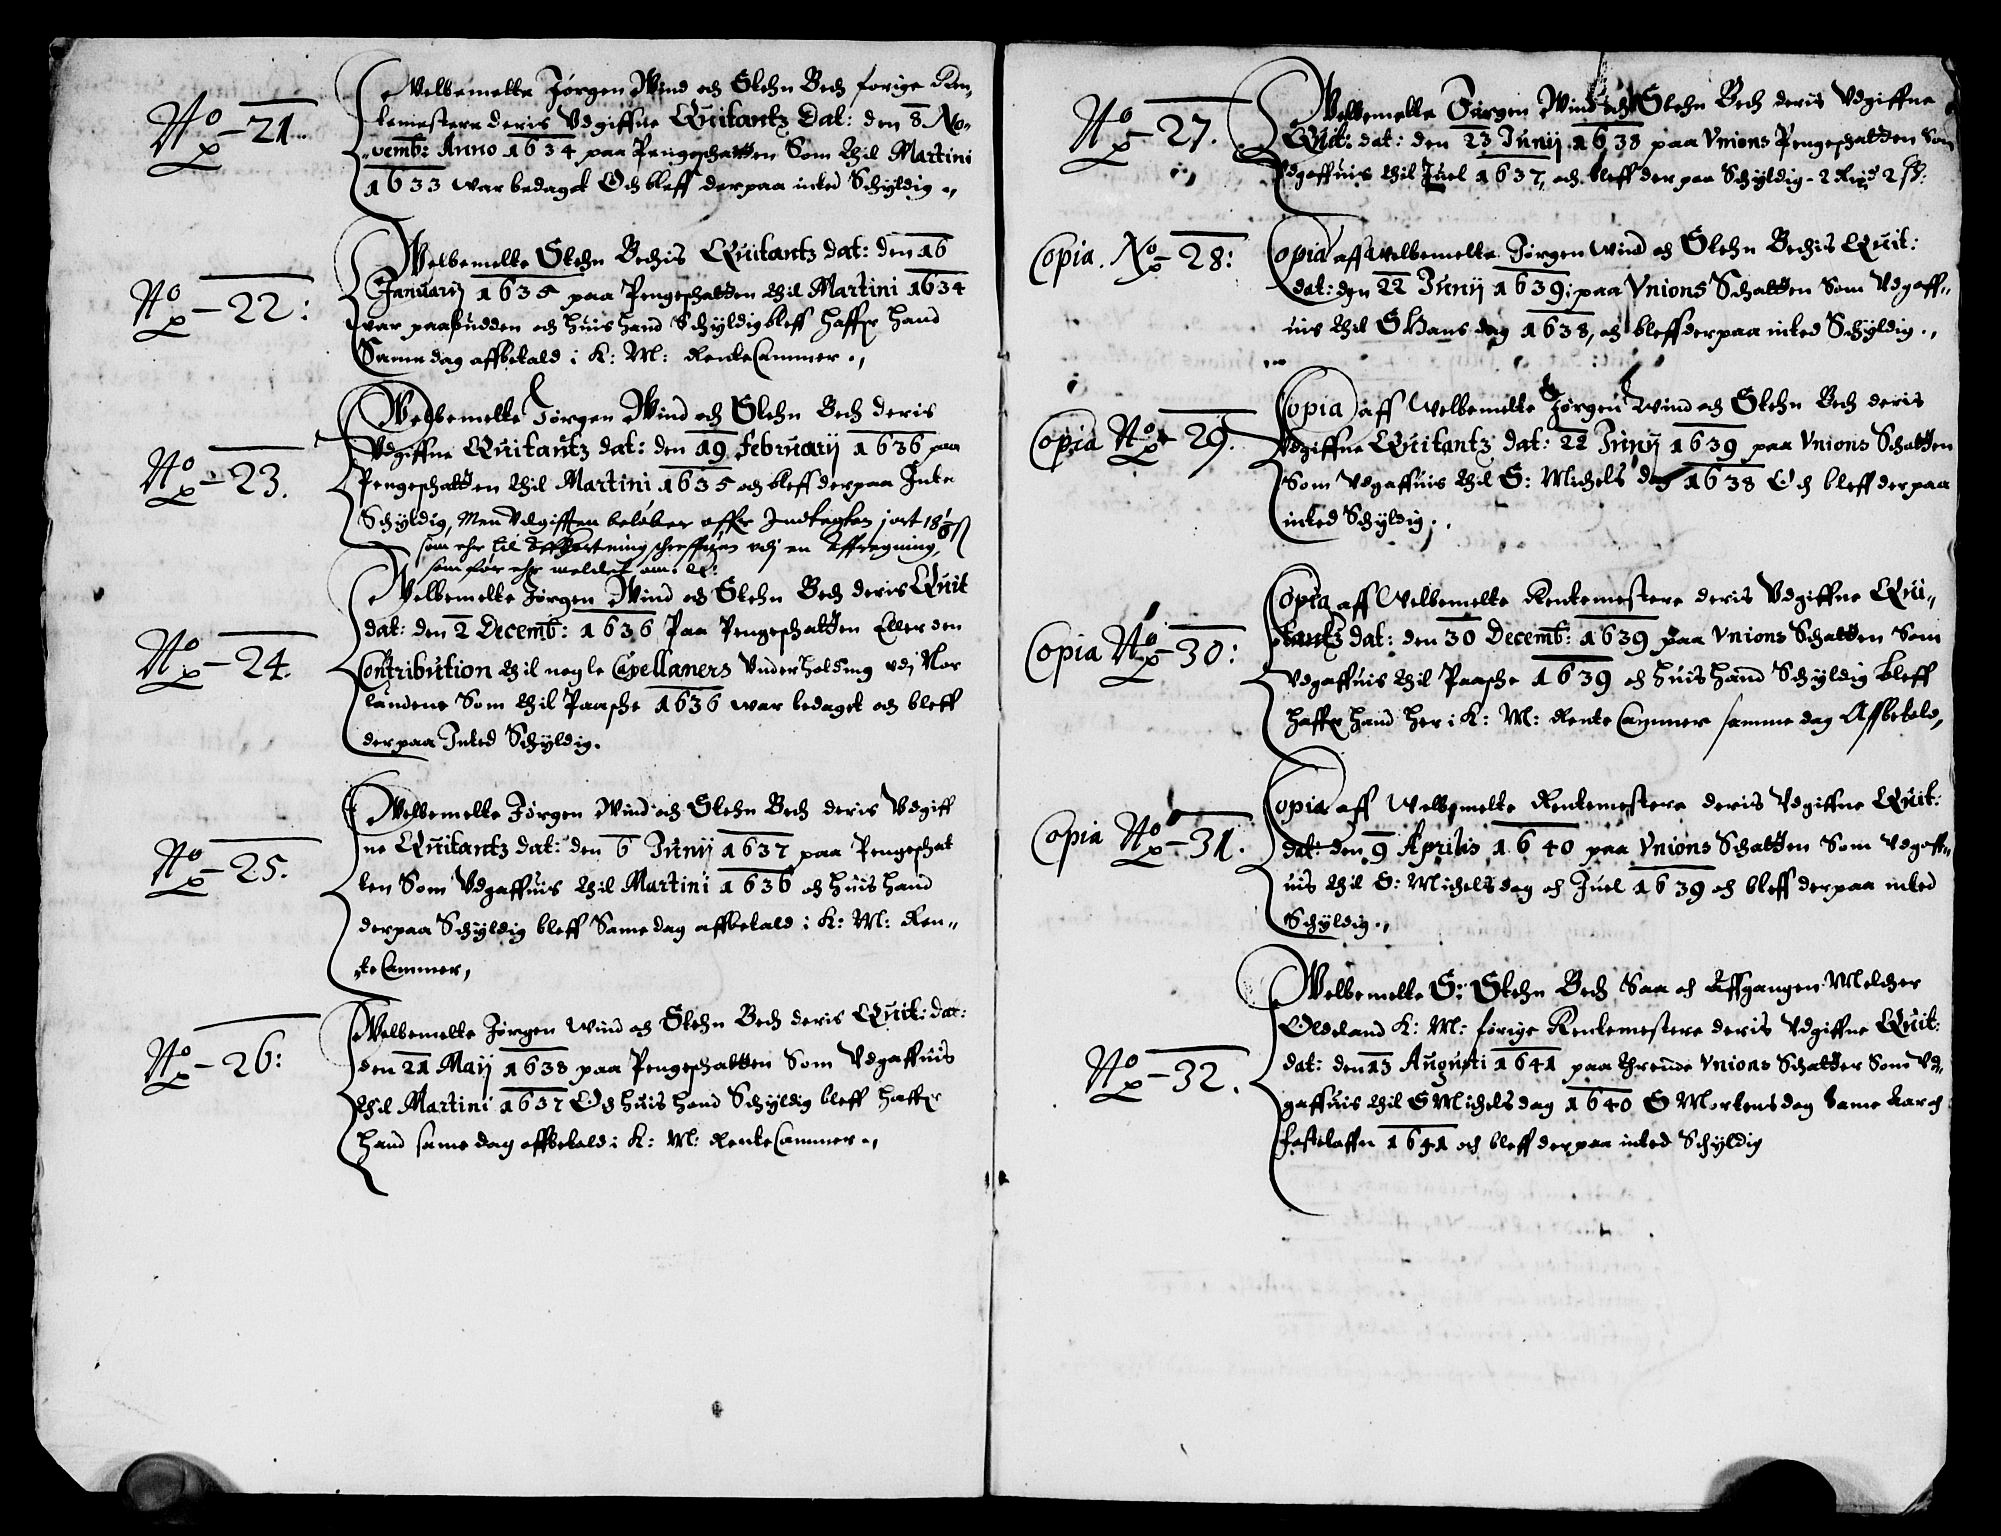 No 21
Welbemelte Jørgen Wind och Stehn Bech forige Ren,,
temestere deris Vdgiffne Quitantz Dat: den 8. No,,
vemb: Anno 1634 paa Pengeschatten Som thil Martini
1633 war bedaget Och bleff derpaa inted Schÿldig.,
No 22:
Welbemelte Stehn Bechis Quitantz dat: den 16
Januarij 1635 paa Pengeschatten thil Martini 1634
var paabudden och huis hand Schÿldig bleff haffr hand
Same dag affbetald i K: M: RenteCammer.,
No 23.
Welbemelte Jørgen Wind och Stehn Bech deris
Vdgiffne Quitantz dat: den 19 Februarij 1636 paa
Pengeschatten thil Martini 1635 och bleff derpaa Inte
Schÿldig, Men Vdgifften beløber offr Indtegten
som ehr til Affkortning schreffuen vdj en Affregning,
som før ehr meldet om.
No 24.
Welbemelte Jørgen Wind och Stehn Bech deris Quit
dat: den 2 Decemb: 1636 Paa Pengeschatten Eller den
Contribution thil nogle Capellaners Vnderholding vdj Nor
landene Som thil Paasche 1636 war bedaget och bleff
derpaa Inted Schÿldig.
No 25.
Welbemelte Jørgen Wind och Stehn Bech deris Vdgiff
ne Quitantz dat: den 6 Junij 1637 paa Pengeschat
ten Som Vdgaffuis thil Martini 1636 och huis hand
derpaa Schÿldig bleff Same dag affbetald i K: M: Ren,,
te Cammer,
No 26:
Welbemelte Jørgen Wind och Stehn Bech deris Quit: dat:
den 21 Maij 1638 paa Pengeschatten Som Vdgaffuis
thil Martini 1637 Och huis hand Schÿldig bleff haffr
hand same dag affbetald i K: M: RenteCammer.,
No 27.
Welbemelte Jørgen Wind och Stehn Bech deris Vdgiffne
Quit: dat: den 23 Junij 1638 paa Vnions Pengeschatten Som
Vdgaffuis thil Juel 1637, och bleff der paa Schÿldig - 2 Rixd 2 ß:
Copia. No 28:
Copia aff welbemelte Jørgen Wind och Stehn Bechis Quit:
dat: den 22 Junij 1639: paa Vnions Schatten Som Vdgaff,,
uis thil S Hans dag 1638, och bleff derpaa inted Schÿldig.,
Copia No 29.
Copia aff Welbemelte Jørgen Wind och Stehn Bech deris
Vdgiffne Quitantz dat: 22 Junij 1639 paa Vnions Schatten
Som Vdgaffuis thil S: Michels dag 1638 Och bleff derpaa
inted Schÿldig.,
Copia No 30:
Copia aff Welbemelte Rentemestere deris Vdgiffne Qui,,
tantz dat: den 30 Decemb: 1639 paa Vnions Schatten Som
Vdgaffuis thil Paasche 1639 och huis hand Schÿldig bleff
haffr hand her i K: M: Rente Cammer samme dag Affbetald,
Copia No 31.
Copia aff Welbemelte Rentemestere deris Vdgiffne Quit:
dat: den 9 Aprilis 1640 paa Vnions Schatten Som Vdgaff,,
uis thil S: Michels dag och Juel 1639 och bleff derpaa inted
Schÿldig.,
No 32.
Welbemelte S: Stehn Bech Saa och Affgangen Melcher
Oldeland K: M: forige Rentemestere deris Vdgiffne Quit:
dat: den 13 Augusti 1641 paa thrende Vnions Schatter Som Vd,,
gaffuis thil S Michels dag 1640 S Mortens dag Same Aar och
fastelaffn 1641 och bleff derpaa inted Schÿldig